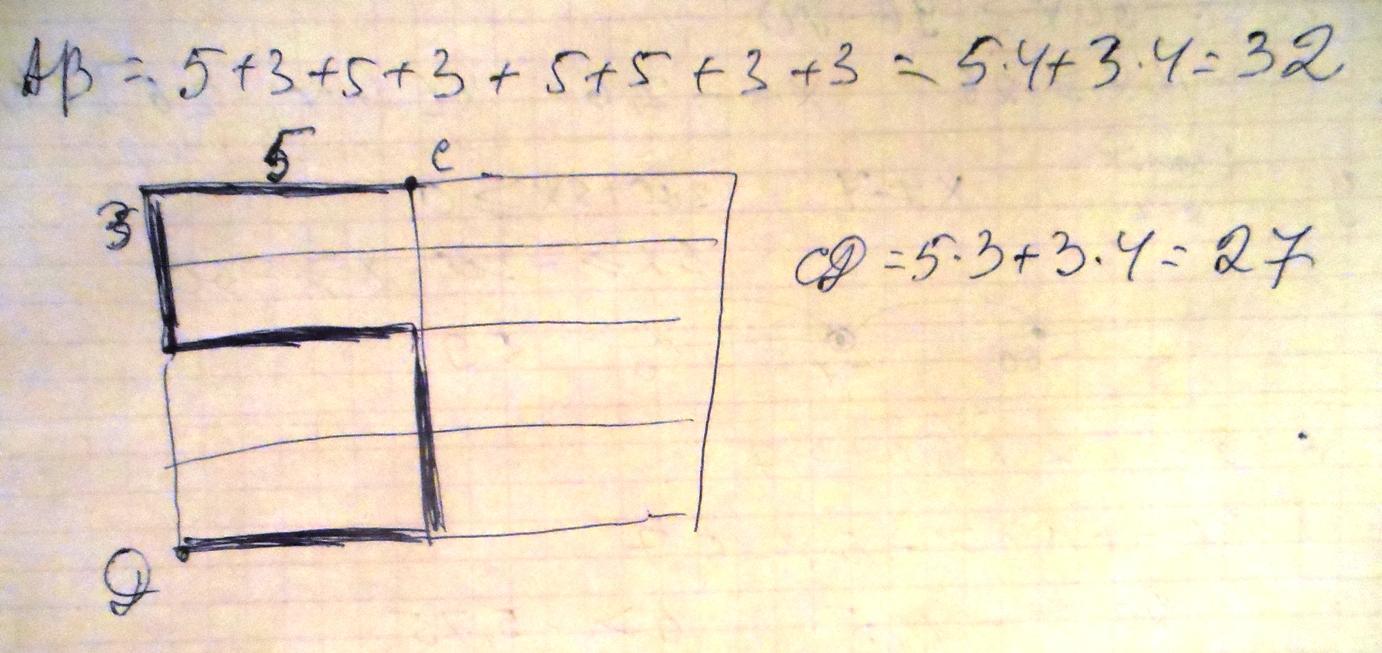 AB = 5+3+5+3+5+5+3+3 = 5·4+3·4=32
5 C
3
CD =5·3+3·4= 27
D